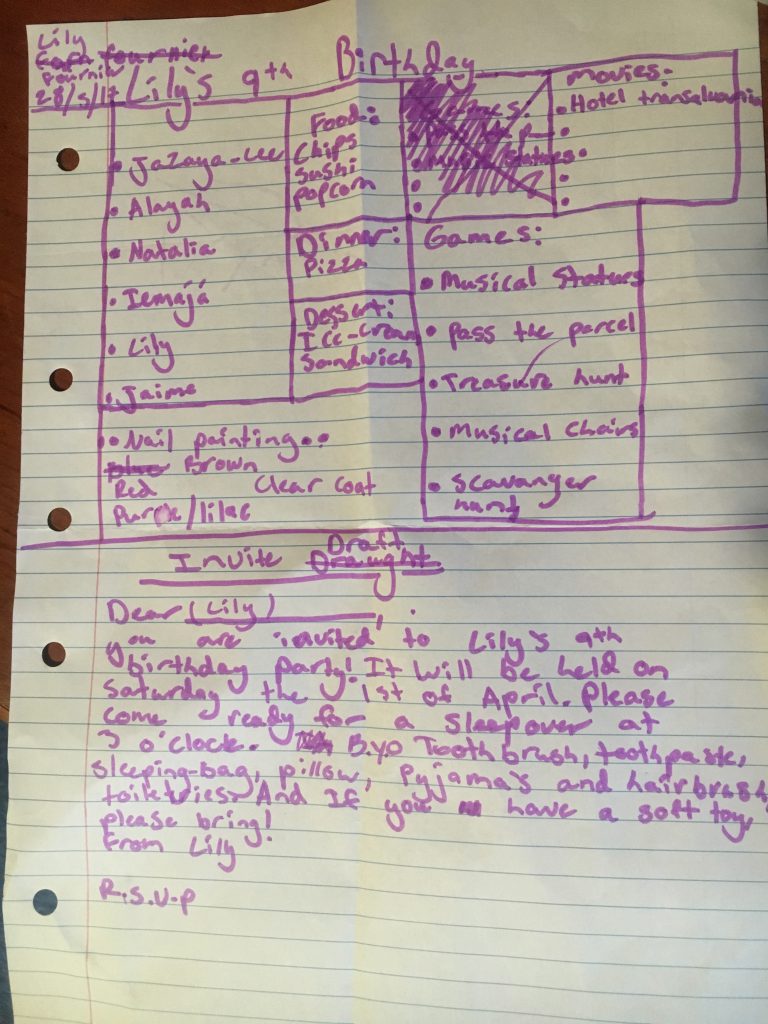 Lily
Fournier
28/3/17
Lily's 9th Birthday
• Jazaya-Lee
• Alayah
• Natalia
• Iemájá
• Lily
• Jaime
Food:
Chips
Sushi
popcorn
Dinner:
Pizza
Dessert:
Ice-cream
Sandwich
Movies:
• Hotel transalvania
Games:
• Musical Statues
• Pass the parcel
• Treasure hunt
• Musical Chairs
• Scavanger
hunt
• Nail painting••
blue Brown
Red Clear coat
Purple/lilac
Invite Draught
Draft
Dear (Lily),
you are invited to Lily's 9th
birthday party! It will be held on
Saturday the 1st of April. Please
come ready for a sleepover at
3 o'clock. B.Y.O Toothbrush, toothpaste,
sleeping-bag, pillow, Pyjama's and hairbrush,
toiletries. And If you have a soft toy,
please bring!
From Lily
R.S.V.P